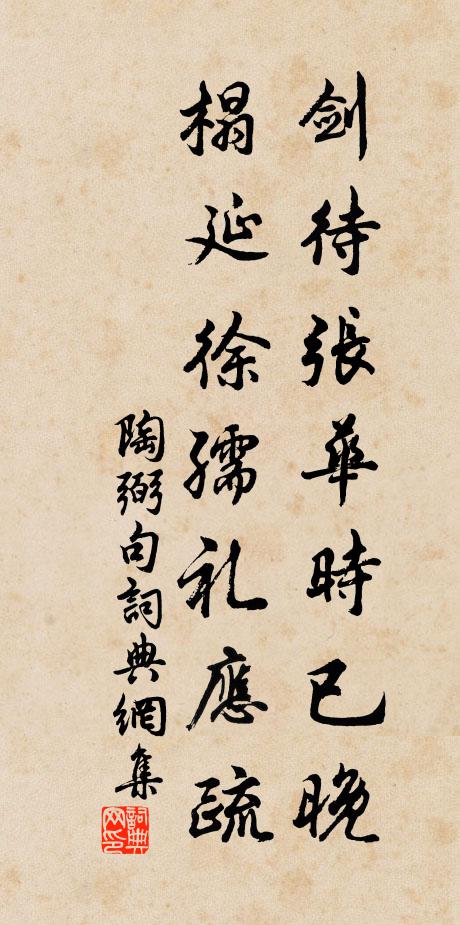 剑待張華時已晚
榻延徐孺礼應疏
陶弼句詞典網集
詞典网印